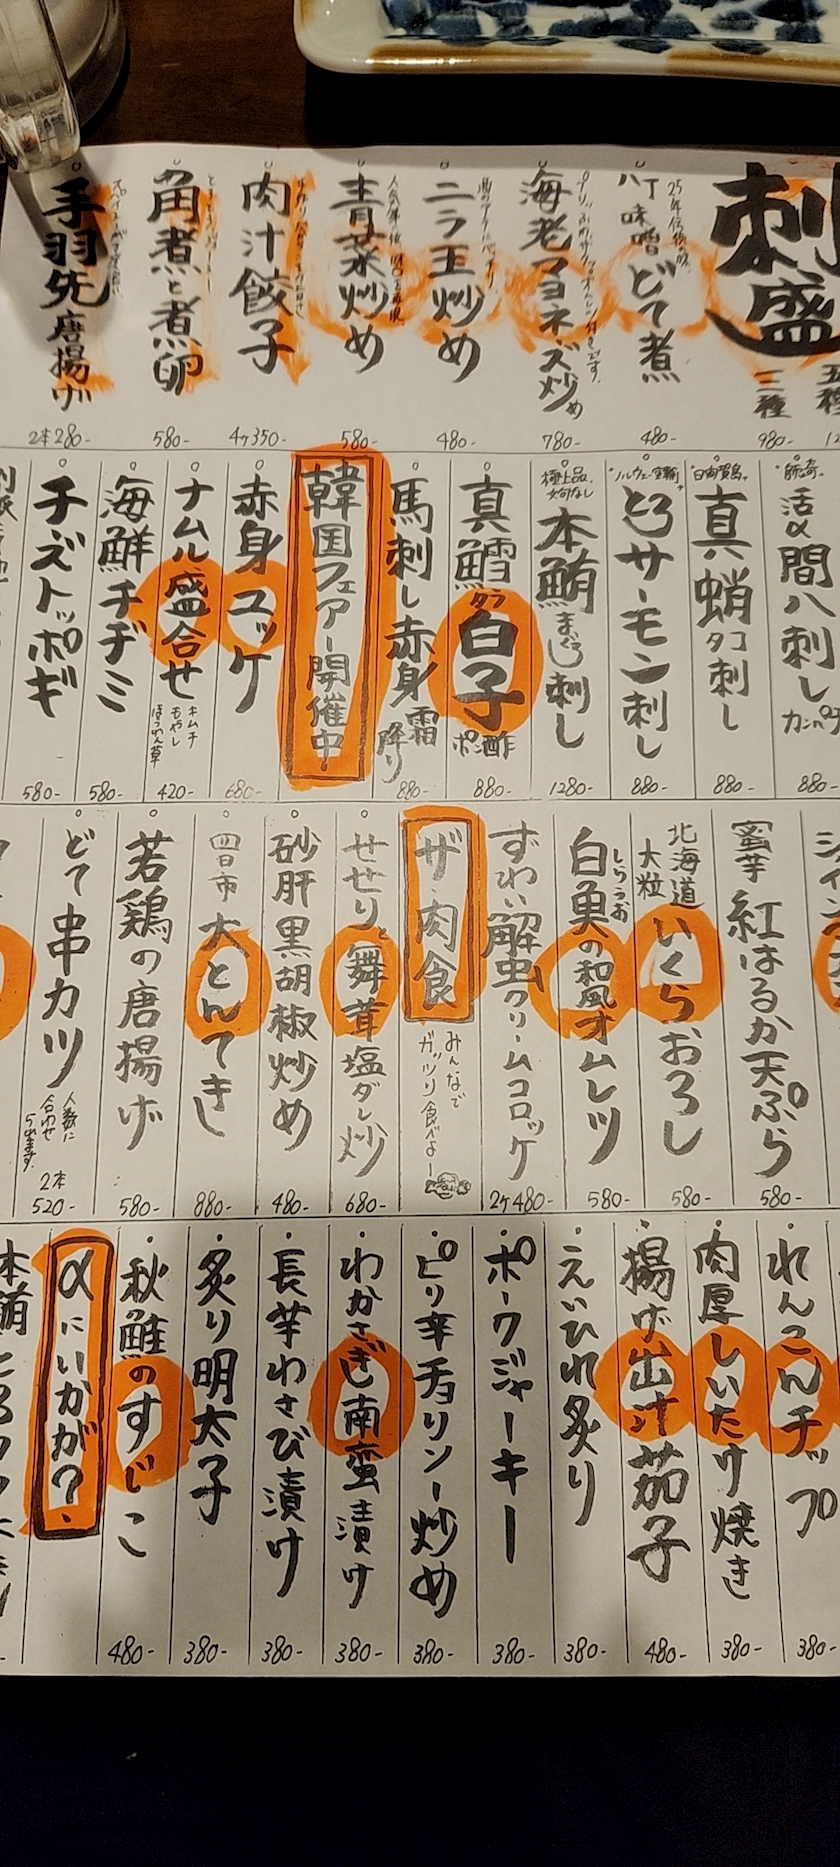 刺盛
三種
980-
25年伝統の味
八丁味噌どて煮
480-
海老マヨネーズ炒め
780-
ニラ玉炒め
480-
青菜炒め
580-
肉汁餃子
4ヶ350-
角煮と煮卵
580-
手羽先唐揚げ
2本280-
活〆間八刺し
カンパチ
880-
真蛸タコ刺し
880-
ノルウェー空輸
とろサーモン刺し
880-
極上品
本鮪まぐろ刺し
1280-
真鱈タラ白子ポン酢
880-
馬刺し赤身霜降り
880-
韓国フェアー開催中
赤身ユッケ
680-
ナムル盛合せ
キムチ
もやし
ほうれん草
420-
海鮮チヂミ
580-
チーズトッポギ
580-
蜜芋紅はるか天ぷら
580-
北海道
大粒
いくらおろし
580-
白魚の和風オムレツ
しらうお
580-
ずわい蟹クリームコロッケ
2ヶ480-
ザ・肉食
みんなで
ガッツリ食べよー
せせりと舞茸塩ダレ炒
680-
砂肝黒胡椒炒め
480-
四日市大とんてき
880-
若鶏の唐揚げ
580-
どて串カツ
人数に
合わせ
られます
2本
520-
れんこんチップ
380-
肉厚しいたけ焼き
380-
揚げ出汁茄子
480-
えいひれ炙り
380-
ポークジャーキー
380-
ピリ辛チョリソー炒め
380-
わかさぎ南蛮漬け
380-
長芋わさび漬け
380-
炙り明太子
380-
秋鮭のすじこ
480-
〆にいかが?